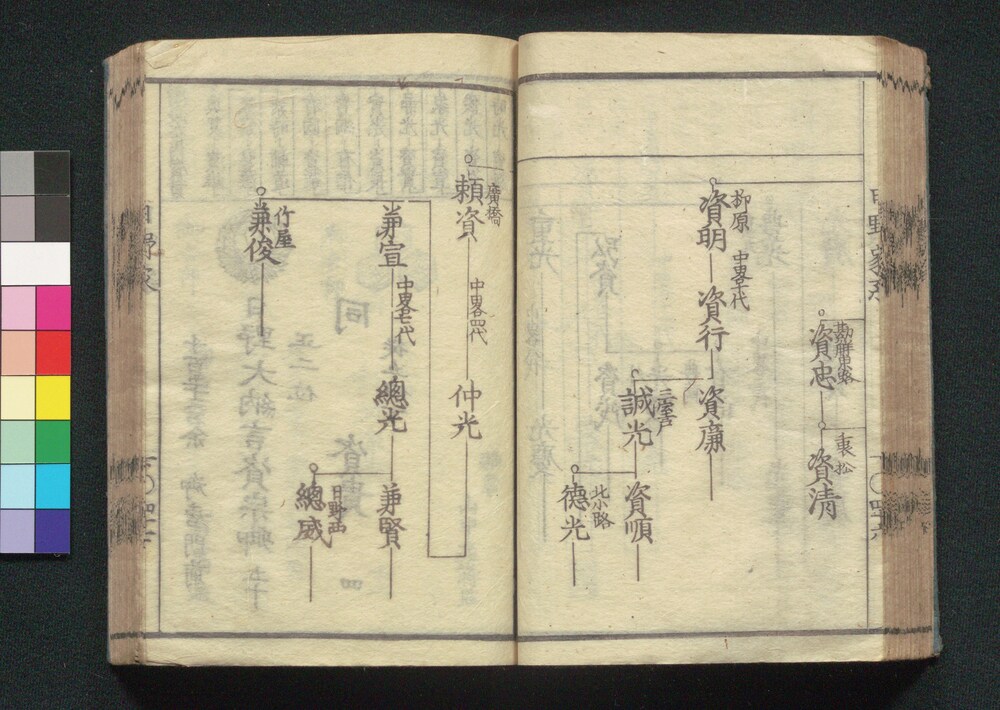 勘解由小路
資忠
裏松
資清
柳原
資明
中畧十代
資行
資廉
三室戸
誠光
資順
北小路
德光
廣橋
頼資
中畧四代
仲光
兼宣
中畧七代
總光
兼賢
日野西
總盛
竹屋
兼俊